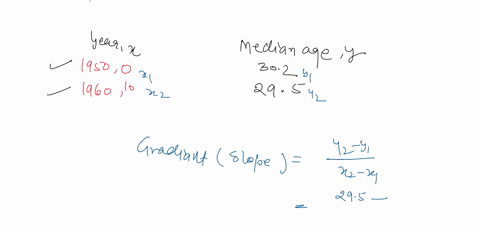 year, x Median age, y
1950, 0 x1 30.2 y1
1960, 10 x2 29.5 y2
Gradiant (slope) = y2-y1 / x2-x1
= 29.5 -